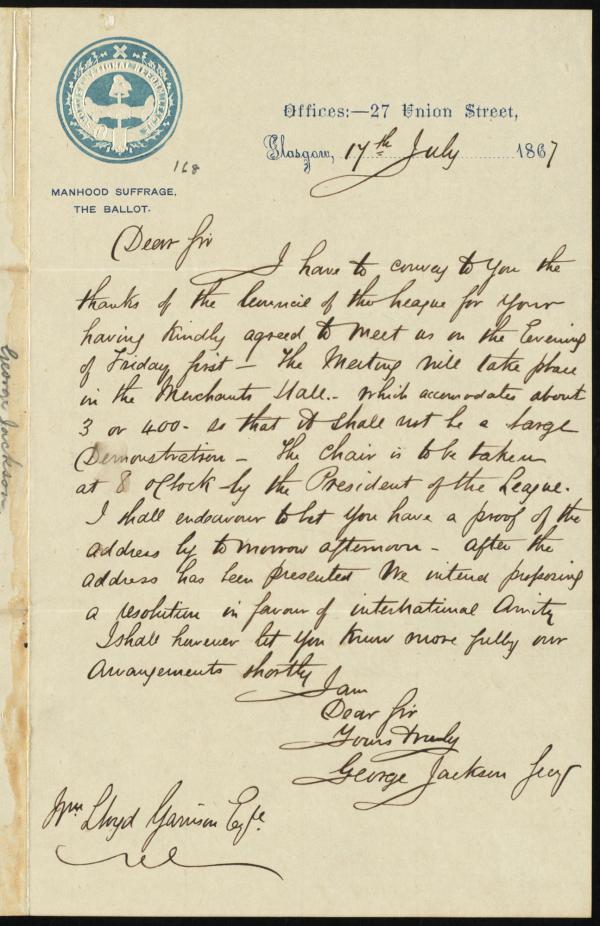 Offices:—27 Union Street,
Glasgow, 17th July 1867
168
MANHOOD SUFFRAGE,
THE BALLOT.
Dear Sir
I have to convey to you the
thanks of the Council of the League for your
having kindly agreed to meet us on the Evening
of Friday first - The Meeting will take place
in the Merchants Hall - which accomodates about
3 or 400 - so that it shall not be a large
Demonstration - The Chair is to be taken
at 8 oClock by the President of the League.
I shall endeavour to let you have a proof of the
address by tomorrow afternoon - after the
address has been presented We intend proposing
a resolution in favour of international Amity
I shall however let you know more fully our
arrangements shortly
I am
Dear Sir
Yours truly
George Jackson Secy
Wm Lloyd Garrison Esqre
George Jackson